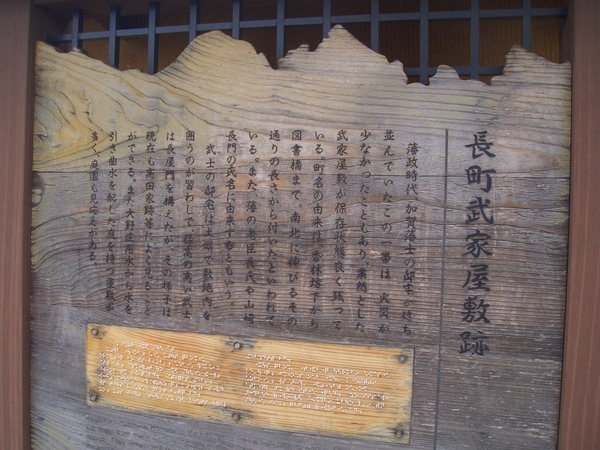 長町武家屋敷跡
藩政時代、加賀藩士の邸宅が建ち
並んでいたこの一帯は、火災が
少なかったこともあり、素然とした
武家屋敷が保存状態良く残って
いる。町名の由来は、香林坊下から
図書橋まで、南北に伸びるその
通りの長さから付いたといわれて
いる。また、藩の老臣長氏や山崎
長門の氏名に由来するともいう。
武士の邸宅は土塀で敷地内を
囲うのが習わしで、格高の高い武士
は長屋門を構えたが、その様子は
現在も高田家跡等でよく見ること
ができる。また大野庄用水から水を
引き曲水を配した庭を持つ屋敷が
多く、庭園も見応えがある。